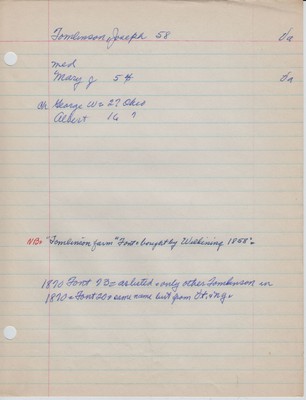 Tomlinson, Joseph 58 Va
med
Mary J 54 Va
ch George W = 27 Ohio
Albert 16 ?
NB = "Tomlinson farm" Font = bought by Wilkining 1858 =
1870 Font 73 = as listed = only other Tomlinson in
1870 = Font 20 = same name but from Vt. + NY =